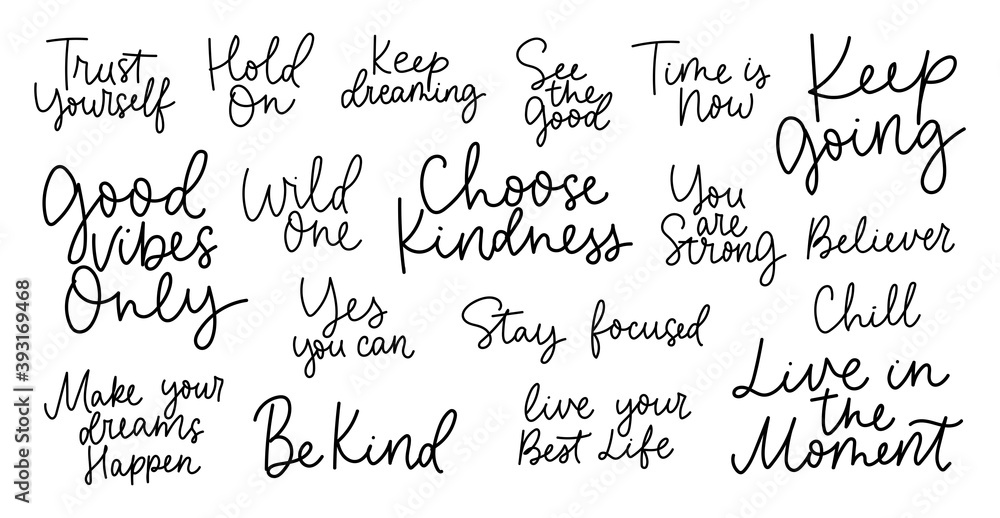 Trust
Yourself
Hold
On
Keep
dreaming
See
the
Good
Time is
Now
Keep
going
Good
vibes
Only
Wild
One
Choose
Kindness
You
are
Strong
Believer
Yes
you can
Stay focused
Chill
Make your
dreams
Happen
Be Kind
live your
Best Life
Live in
the
Moment
Adobe Stock | #393169468
Adobe Stock